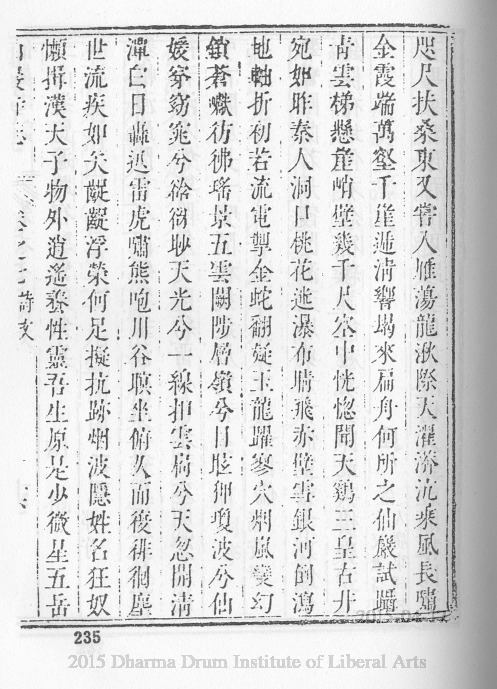 咫尺扶桑東又嘗入雁蕩龍湫際天濯濟沆乘風長嘯
金霞端萬壑千崖遞清響朅來扁舟何所之仙巖試躡
青雲梯懸崖峭壁幾千尺空中恍惚聞天鷄三皇古井
宛如昨秦人洞口桃花迷瀑布晴飛赤壁雪銀河倒瀉
地軸折初若流電掣金蛇翻疑玉龍躍寥穴烟嵐變幻
鎖蒼巘彷彿瑤景五雲闕陟層嶺兮目眩俯瓊波兮仙
媛穿窈窕兮谽谺聆天光兮一線捫雲扃兮天忽開清
潭白日轟迅雷虎嘯熊咆川谷暝坐俯久而復徘徊塵
世流疾如矢齷齪浮榮何足擬抗跡烟波隱姓名狂奴
懶揖漢天子物外逍遙養性靈吾生原是少微星五岳
仙巖 志 卷之七 詩文
235
2015 Dharma Drum Institute of Liberal Arts